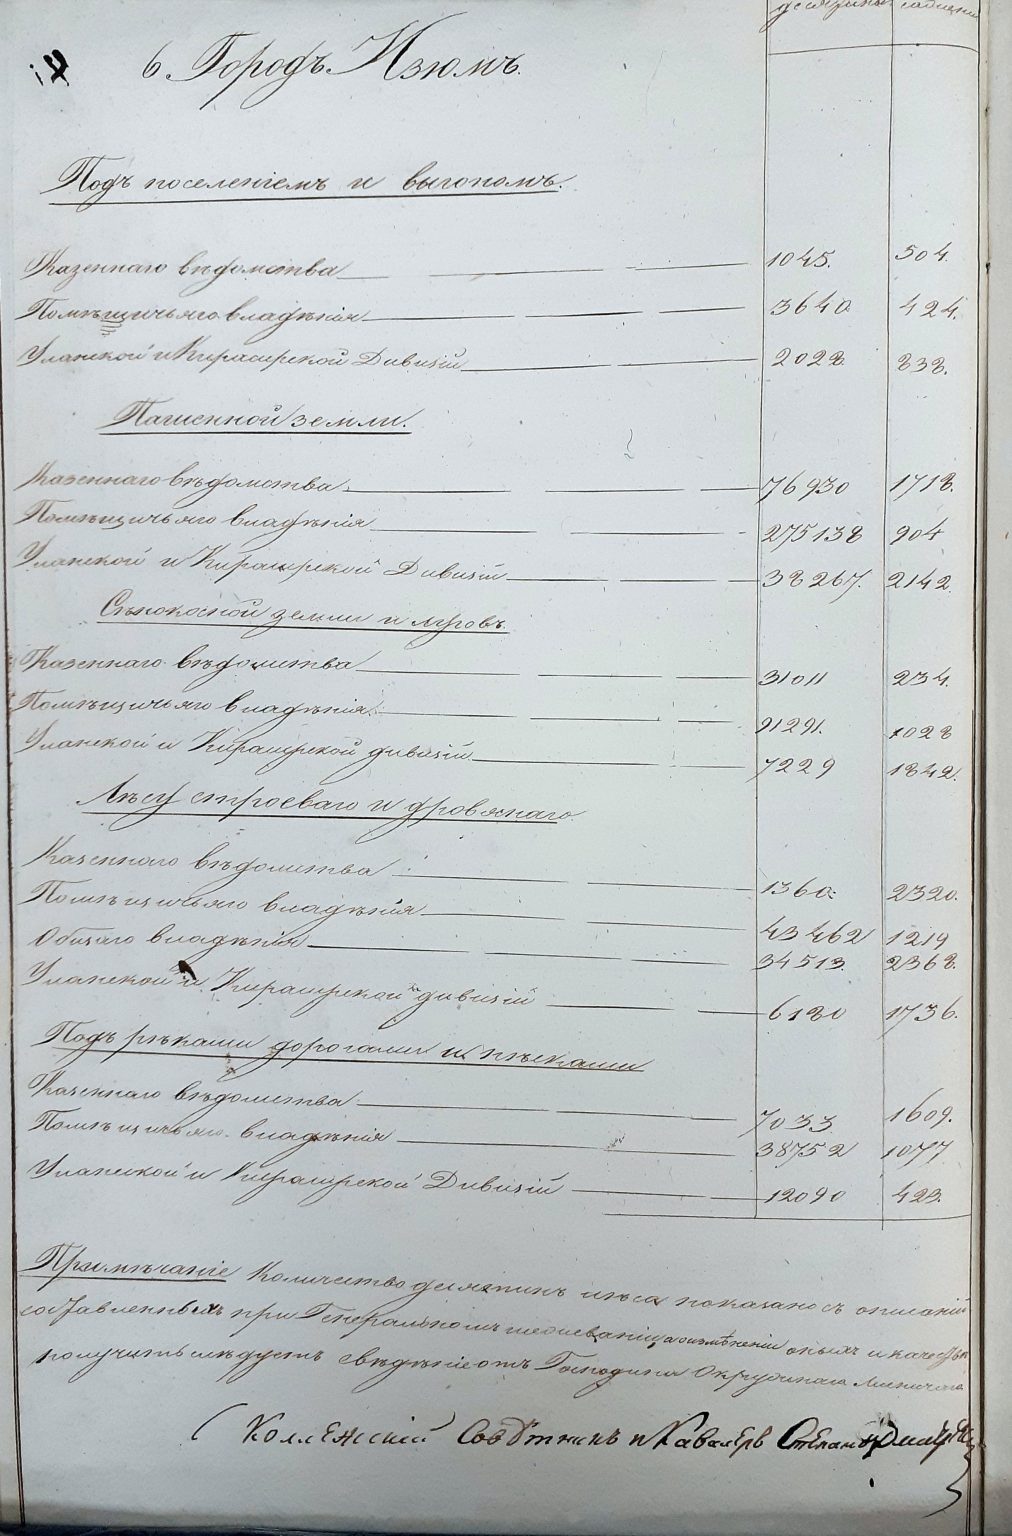 десятины сажени
6. Городъ Изюмъ.
Подъ поселеніемъ и выгономъ.
Казеннаго вѣдомства 1045. 504.
Помѣщичьяго владѣнія 3640 424.
Уланской и Кирасирской Дивизій 2028 838.
Пашенной земли.
Казеннаго вѣдомства 76930 1718.
Помѣщичьяго владѣнія 275138 904
Уланской и Кирасирской Дивизій 38267. 2142
Сѣнокосной земли и луговъ
Казеннаго вѣдомства 31011 234.
Помѣщичьяго владѣнія 91291. 1028
Уланской и Кирасирской дивизій 7229 1842.
Лѣсу строеваго и дровянаго.
Казеннаго вѣдомства 1360. 2320.
Помѣщичьяго владѣнія 43462 1219
Общаго владѣнія 34513. 2368.
Уланской и Кирасирской дивизій 6180 1736.
Подъ рѣками дорогами и пѣсками
Казеннаго вѣдомства 7033 1609.
Помѣщичьяго владѣнія 38752 1077
Уланской и Кирасирской Дивизій 12090 423.
Примѣчаніе Количество десятинъ лѣса показано съ описаній
составленныхъ при Генеральномъ межеваніи, а о измѣненіи оныхъ и качествѣ
получить слѣдуетъ свѣденіе отъ Господина Окружнаго Лѣсничаго
Коллежскій Совѣтникъ и Кавалеръ Степанъ